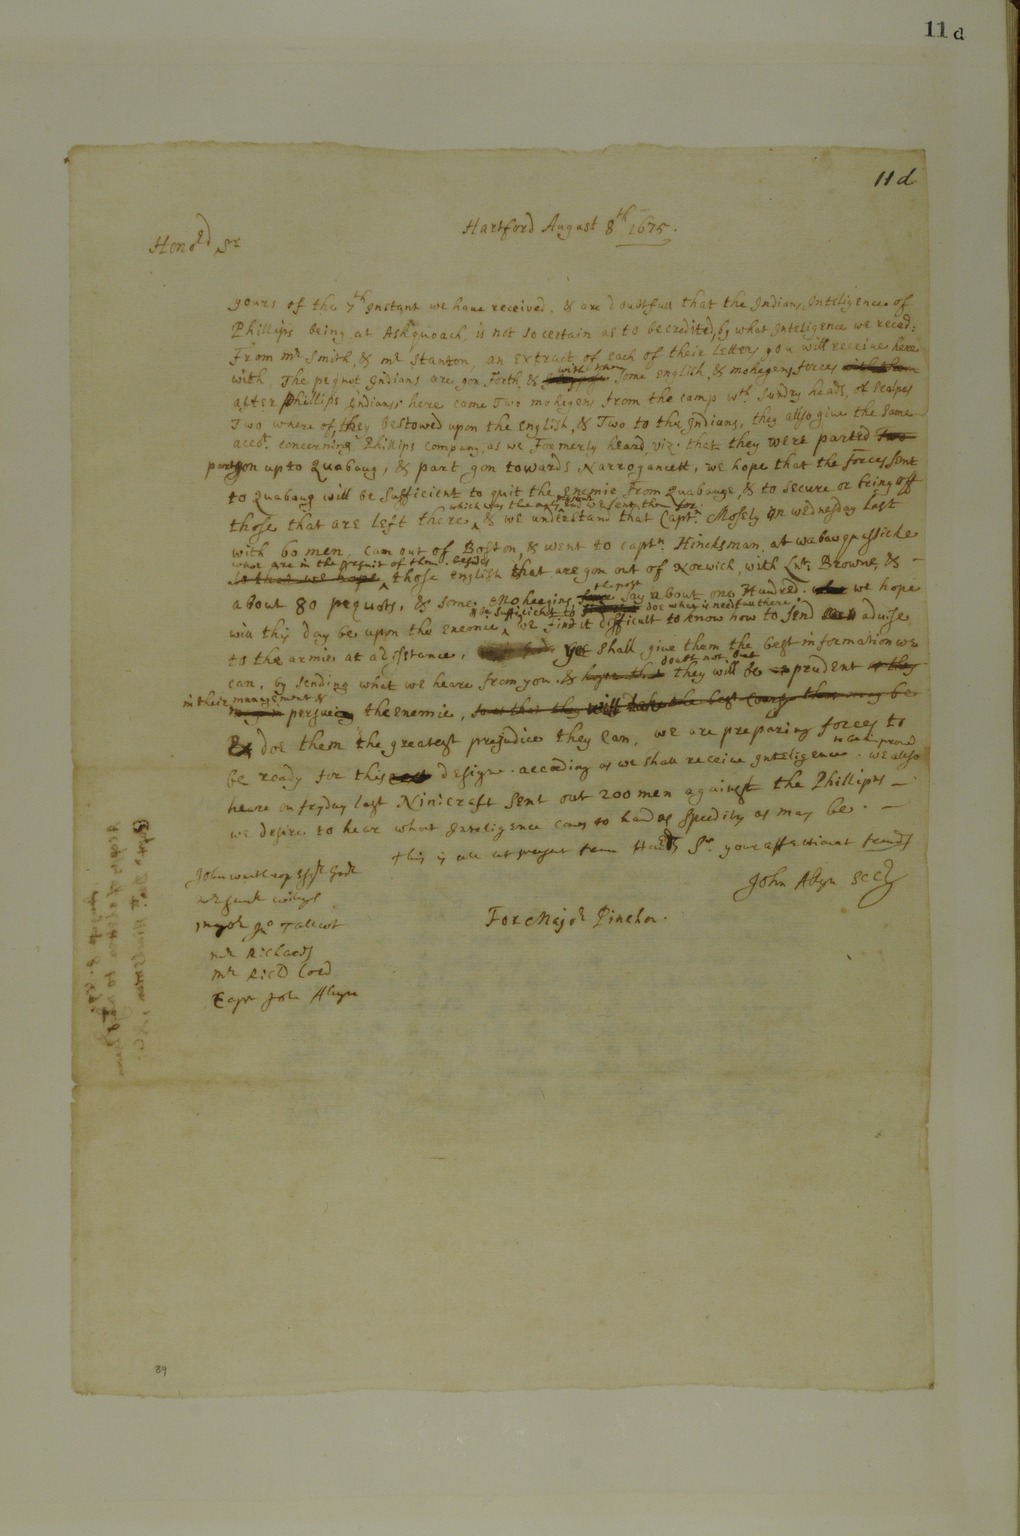 11 d
11 d
Hartford August 8th 1675.
Honord Sr
yours of the 7th Instant we have received, & are doubtfull that the Indians Inteligence of
Phillips being at Ashquoach, is not so certain as to be credited, by what Inteligence we recd:
From mr Smith, & mr Stanton, an extract of each of their Letters you will receive here
with some
with, The pequot Indians are gon forth, & some English & mohegens forces
after Phillips Indians; here came Two mohegens from the camp wth Sundry heads, or Scalpes
Two where of they bestowed upon the English, & Two to the Indians, they allso give the same
acct. concerning Phillips company, as we Formerly heard, viz. that they were parted Two
part gon up to Quabaug, & part gon towards Narrogancett, we hope that the forces sent
to Quabaug will be Sufficient to quit the enemie From Quabauge, & to secure or bring off
which was the we sent them for
those that are left there, & we understand that Captn. Mosely on wednesday last
with 60 men, cam out of Boston, & went to captn. Hincksman, at wabaoquassicke
who are in the presuit of them. besides
so that we hope those English that are gon out of Norwich, with Lnt. Browne, &
the most
about 80 pequots, & some Moheagins, say about one Hundred. we hope
Sufficient to doe what is needful there
will this day be upon the enemie, we find it difficult to know how to send advise
to the armies at a disstance, yet shall give them the best information we
doubt not but
can, by sending what we heare from you. & hope that they will be prudent
in their management &
persueing the enemie, so as that they will take the best cours that may be
& doe them the greatest prejudice they can, we are preparing forces to
be ready for this designe. according as we shall receive Inteligence. we allso
heare on fryday last Ninicraft sent out 200 men against the Phillips
we desire to heare what Inteligence coms to hand as speedily as may be.
this is all at present from Sr your affectionat friends
John Allyn Secry
For Major Pinchon.
John Winthrop Esqr Govr
Majr Jno Tallcot
mr Richards
mr Ricd Lord
Capt John Allyn
August 8. 1675
89